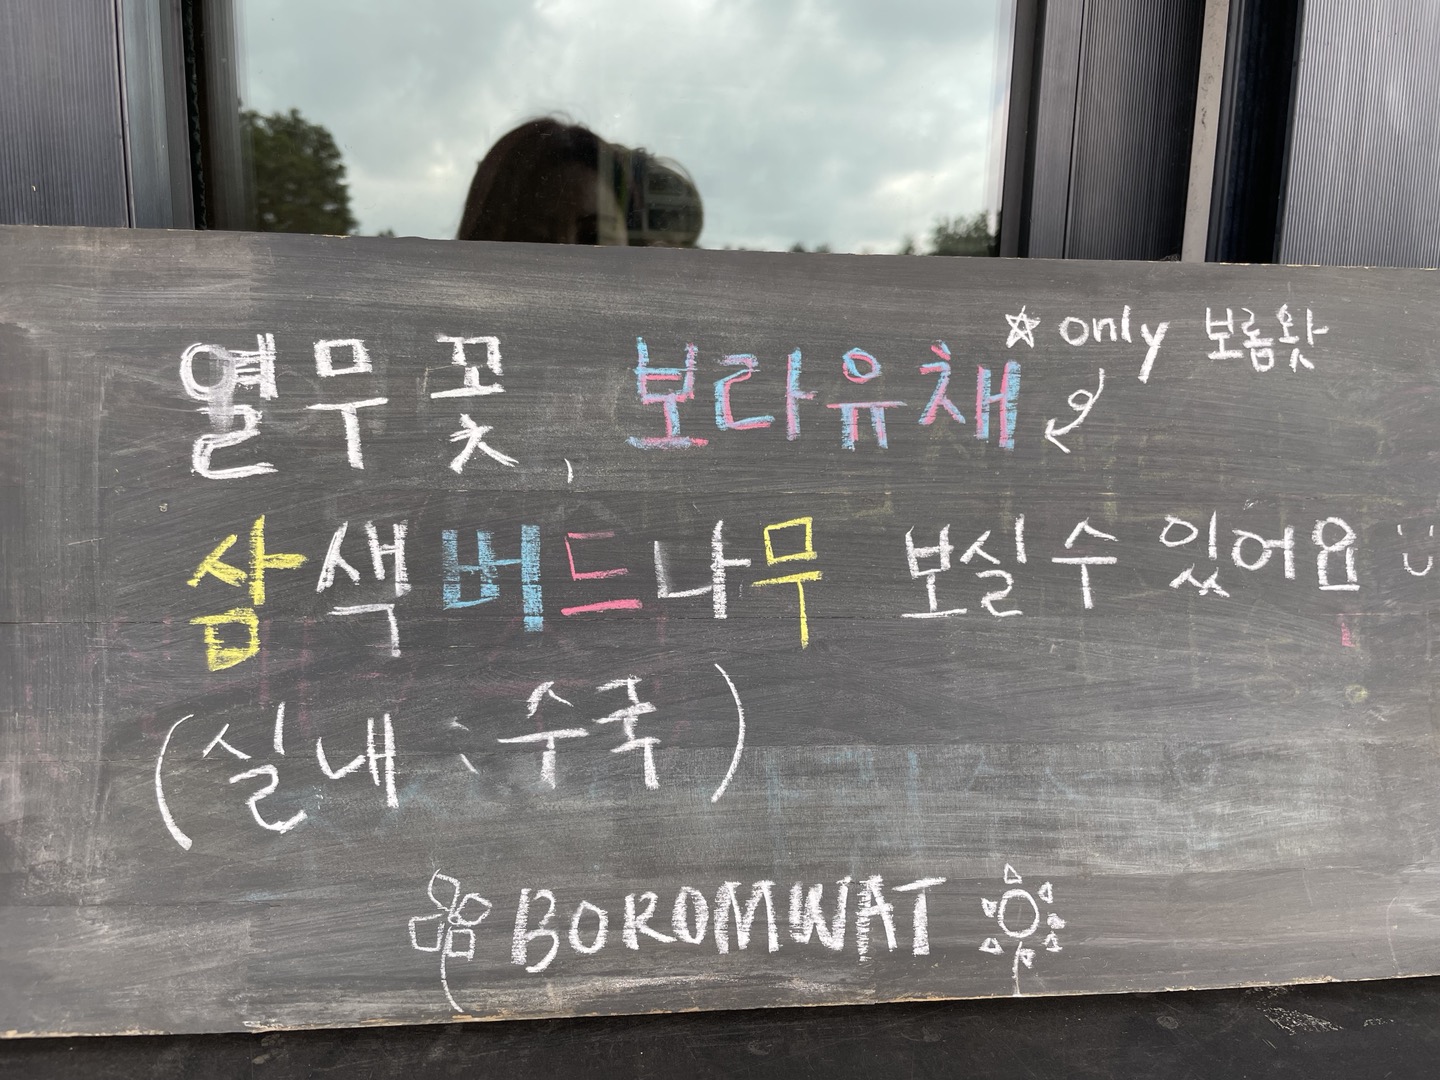 ☆ only 보롬왓
열무꽃, 보라유채
삼색버드나무 보실 수 있어요 :)
(실내 : 수국)
BOROMWAT